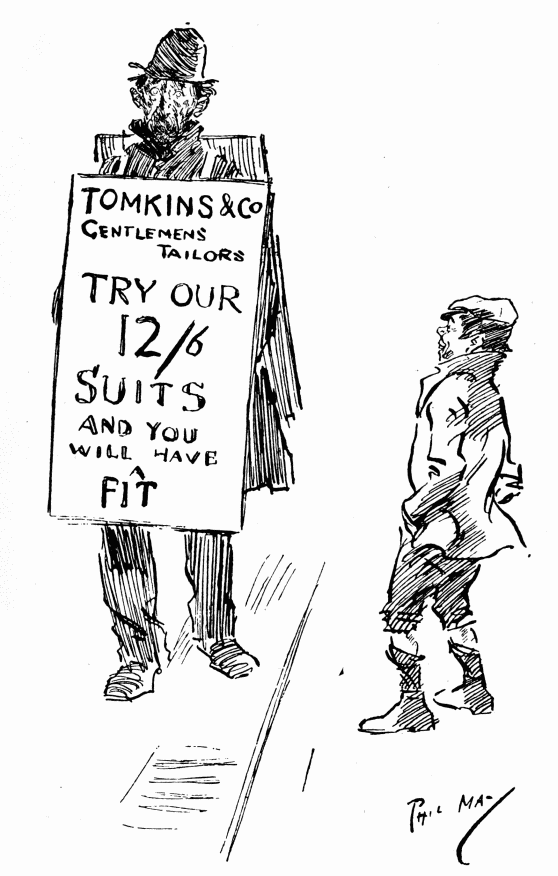 TOMKINS & Co
GENTLEMENS
TAILORS
TRY OUR
12/6
SUITS
AND YOU
WILL HAVE
A
FIT
PHIL MAY